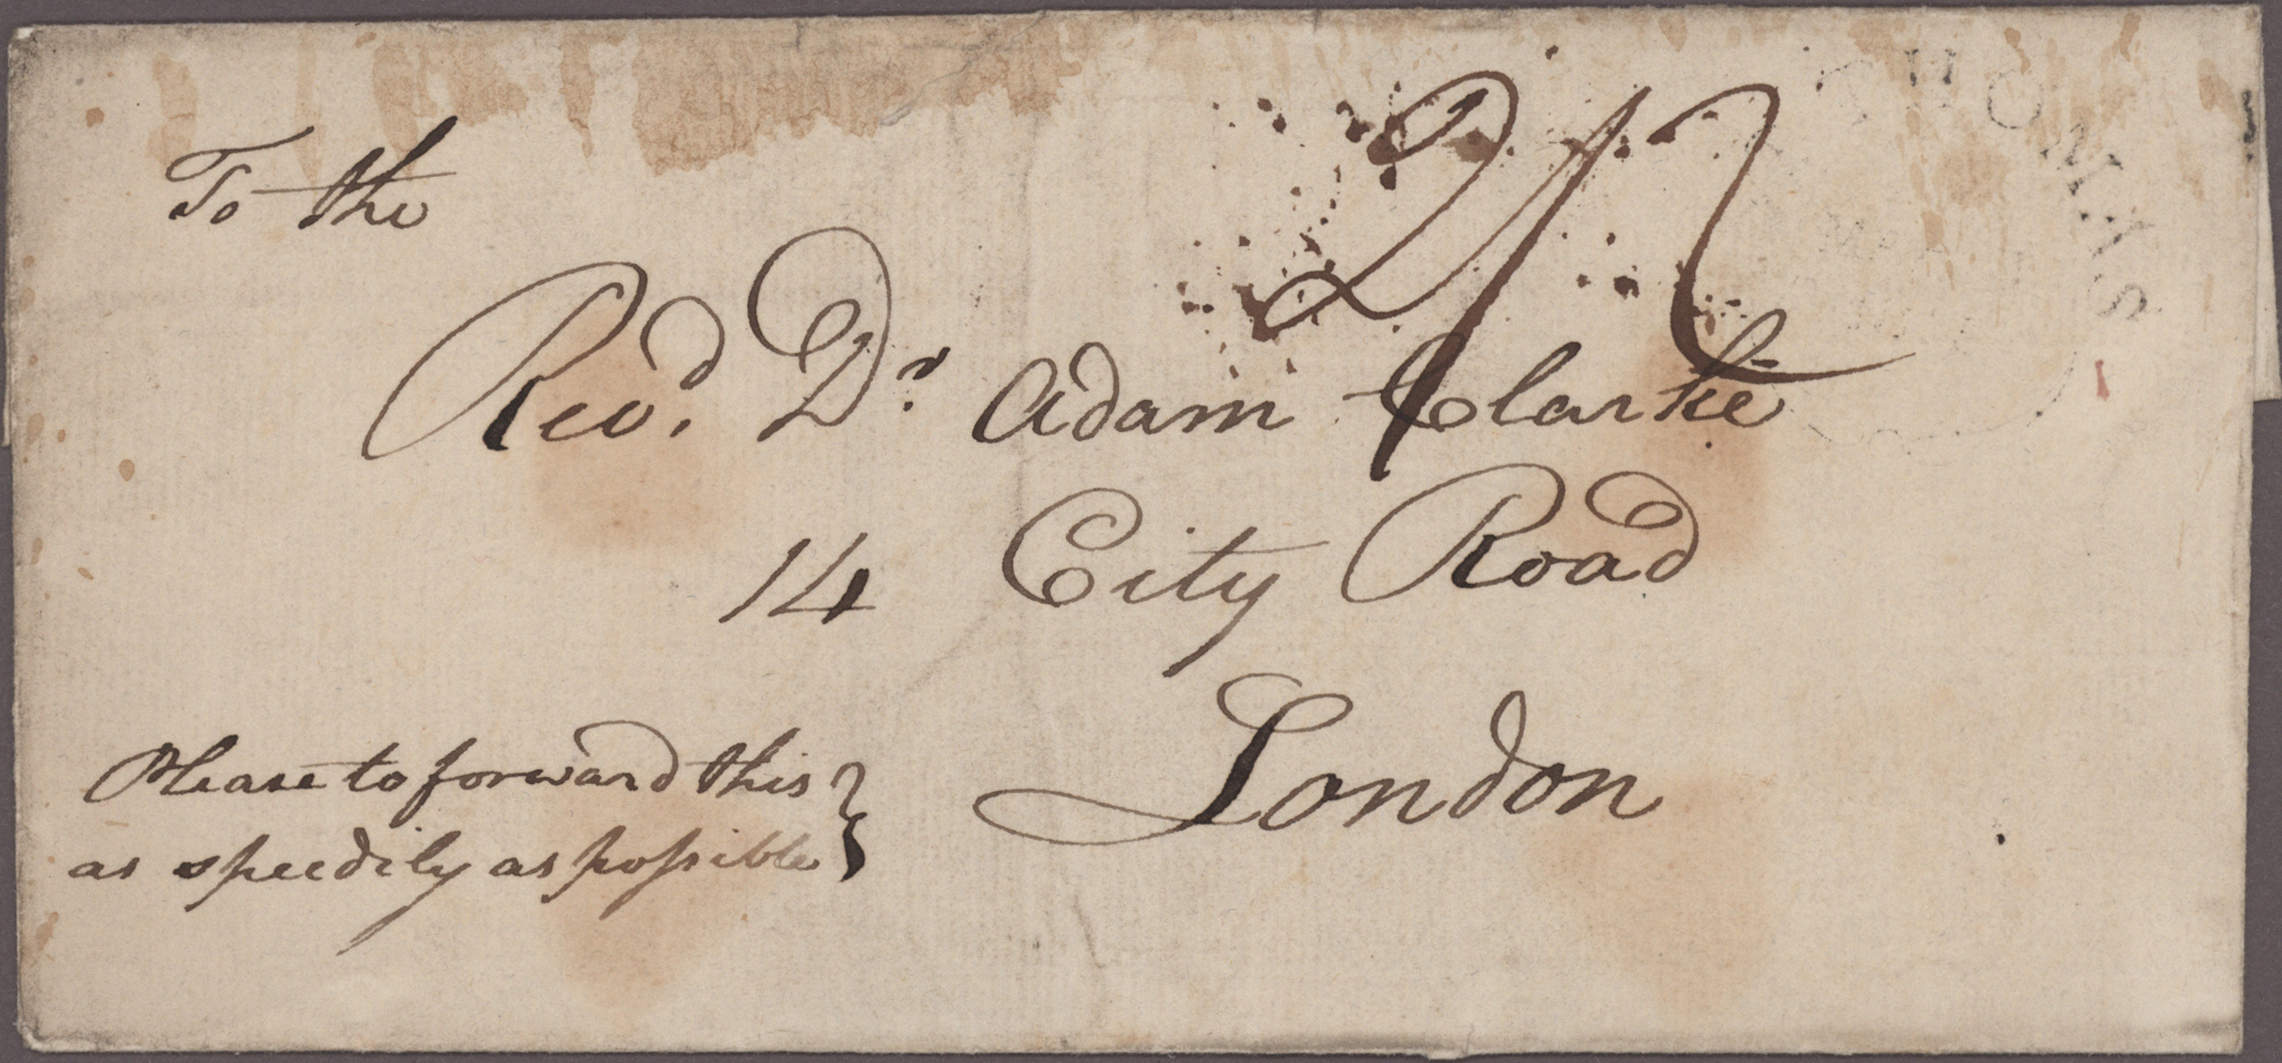 THOMAS
2/2
To the
Revd. Dr. Adam Clarke
14 City Road
London
Please to forward this
as speedily as possible